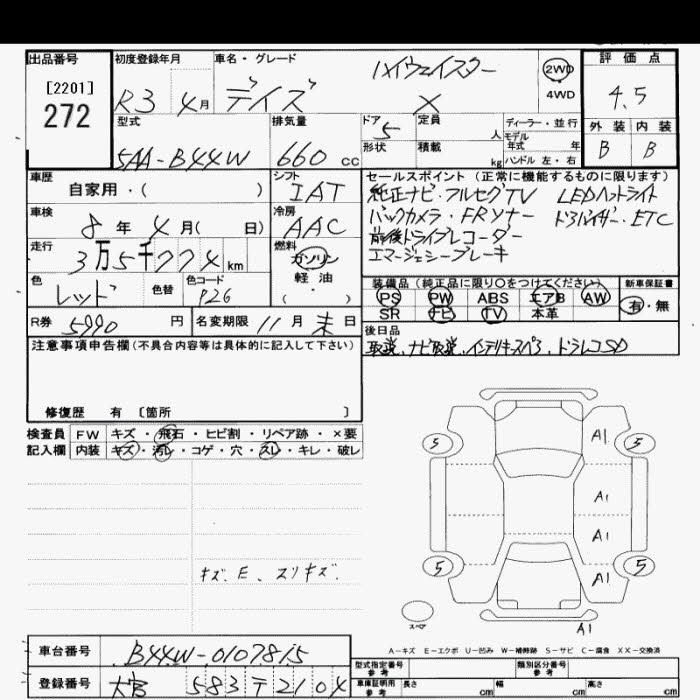 出品番号
[2201]
272
初度登録年月
R3 4月
車名・グレード
デイズ
ハイウェイスター
X
2WD
4WD
評価点
4.5
外装 内装
B B
型式
5AA-B44W
排気量
660 cc
ドア
5
定員
人
形状
積載
kg
ディーラー・並行
モデル
年式 年
ハンドル 左・右
車歴
自家用・( )
シフト
IAT
車検
8年 4月( 日)
冷房
AAC
走行
3万5千774km
燃料
ガソリン
軽油
( ・ )
色
レッド
色替
色コード
P26
R券
5990円
名変期限 11月末日
セールスポイント (正常に機能するものに限ります)
純正ナビ・フルセグTV LEDヘッドライト
バックカメラ・FRソナー ドアバイザー・ETC
前後ドライブレコーダー
エマージェンシーブレーキ
装備品 (純正品に限り○をつけてください)
PS PW ABS エアB AW
SR ナビ TV 本革
新車保証書
有・無
後日品
取説、ナビ取説、インテリキースペア、ドラレコSD
注意事項申告欄(不具合内容等は具体的に記入して下さい)
修復歴 有 〔箇所 〕
検査員 FW キズ・飛石・ヒビ割・リペア跡・×要
記入欄 内装 キズ・汚レ・コゲ・穴・スレ・キレ・破レ
キズ、E、スリキズ.
5
A1
5
A1
A1
5
A1
5
スペア
A1
A-キズ E-エクボ U-凹み W-補修跡 S-サビ C-腐食 XX-交換済
車台番号
B44W-0107815
登録番号
大宮 583 テ 2104
型式指定番号
参考
類別区分番号
参考
車庫証明用
参考
長さ cm
幅 cm
高さ cm